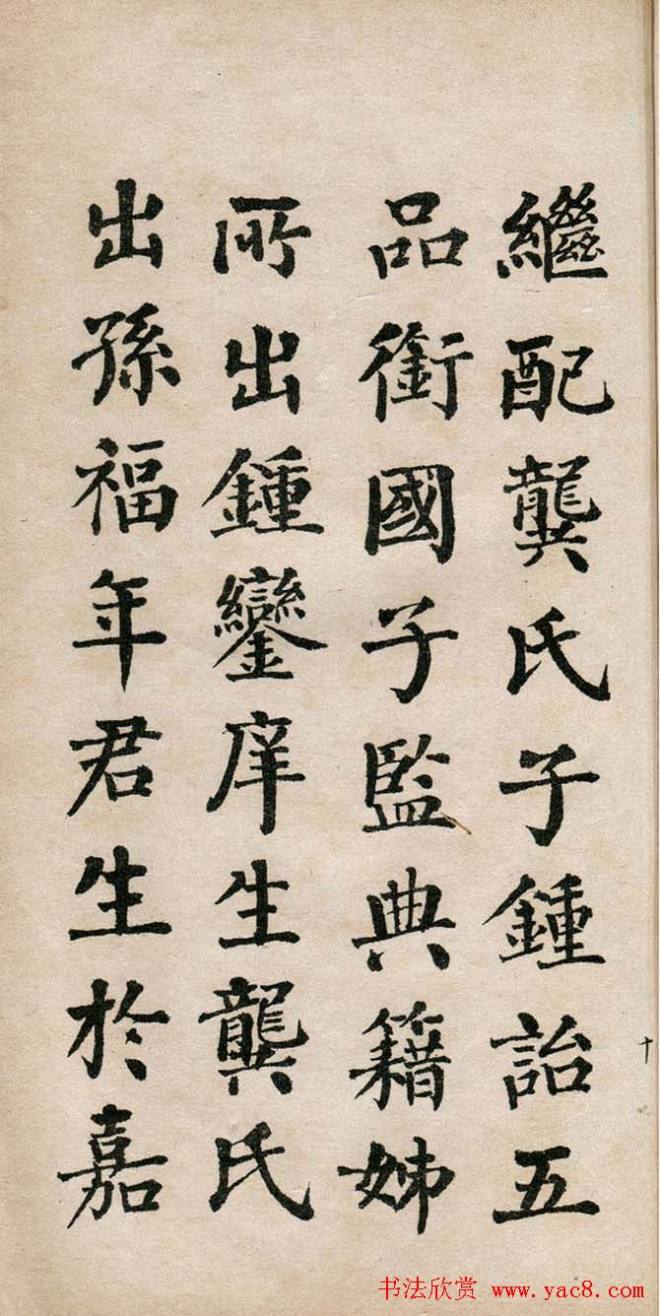 繼配龔氏子鍾詒五
品銜國子監典籍姊
所出鍾鑾庠生龔氏
出孫福年君生於嘉
十
书法欣赏 www.yac8.com